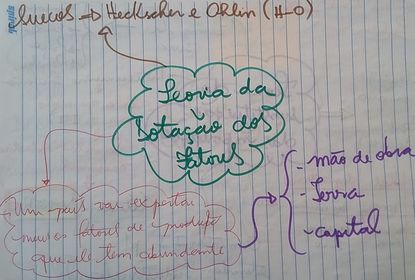 Suecos → Heckscher e Ohlin (H-O)
Teoria da
Dotação dos
Fatores
Um país vai exportar
mais os fatores de produção
que ele tem abundante
- mão de obra
- Terra
- capital